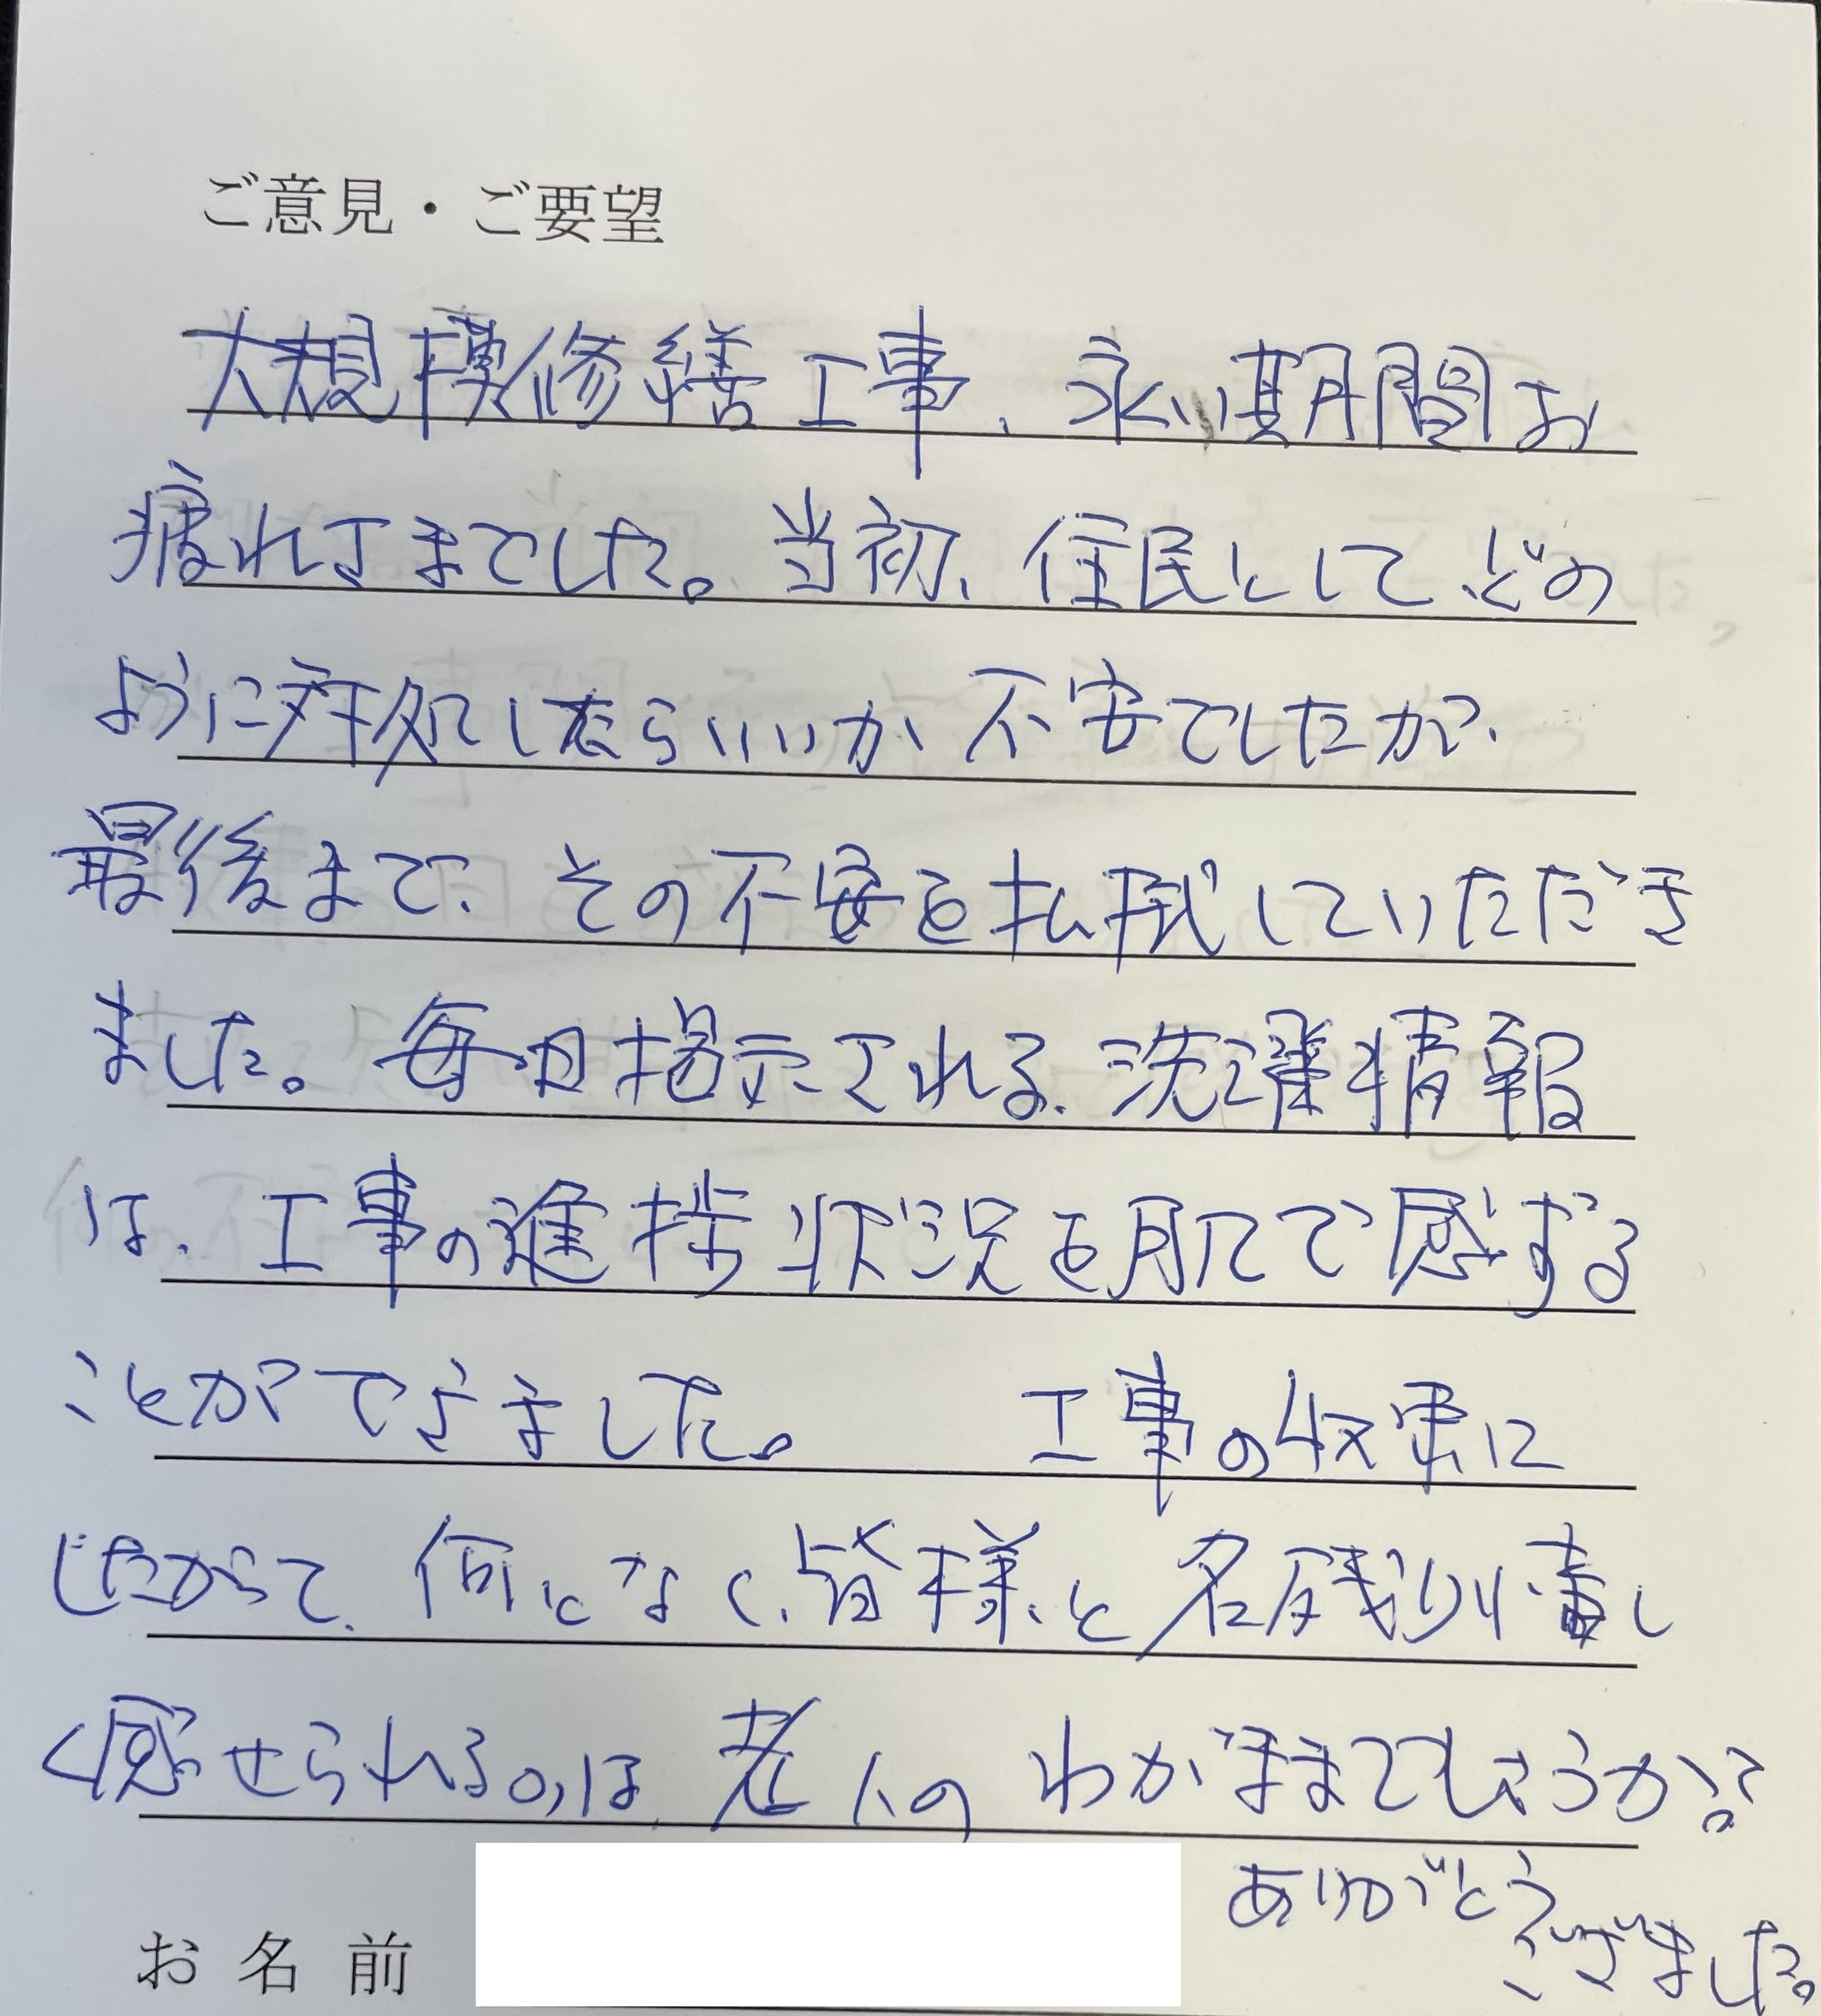 ご意見・ご要望
大規模修繕工事、永い期間お
疲れさまでした。当初、住民として、どの
ように対処したらいいか不安でしたが、
最後まで、その不安を払拭していただき
ました。毎日掲示される、洗濯情報
は、工事の進捗状況を肌で感ずる
ことができました。 工事の収束に
したがって、何となく、皆様と名残り惜し
く感せられるのは、老人のわがままでしょうか?
ありがとう
ございました。
お名前